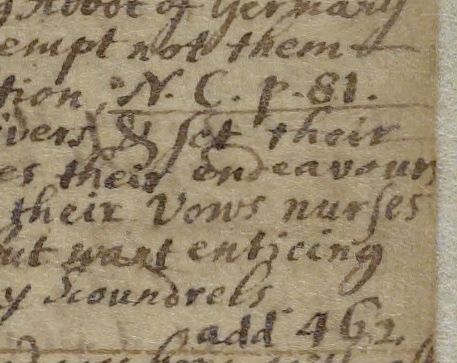 Abbot of Germany
empt not them
tion, N. C. p. 81.
ivers & set their
es their endeavours
their Vows nurses
ut want enticing
y Scoundrels
add 462.